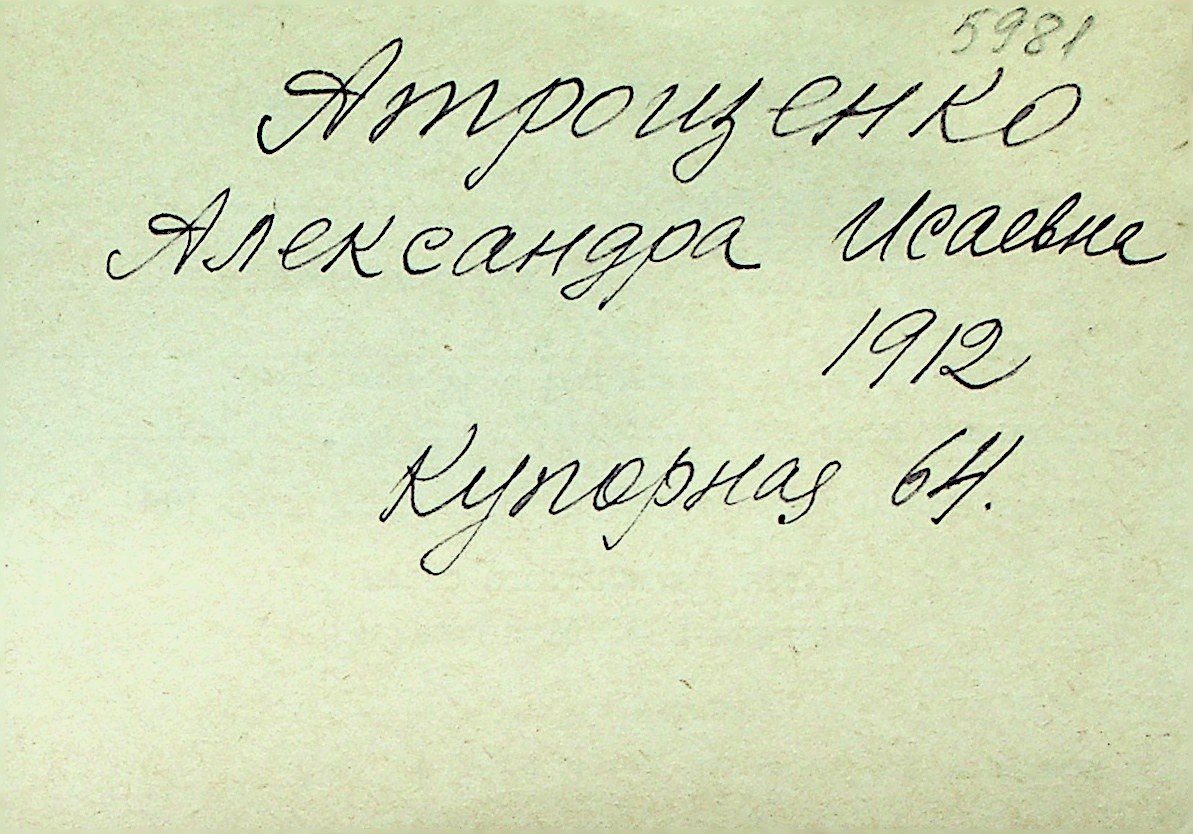 5981
Атрощенко
Александра Исаевна
1912
Купорная 64.